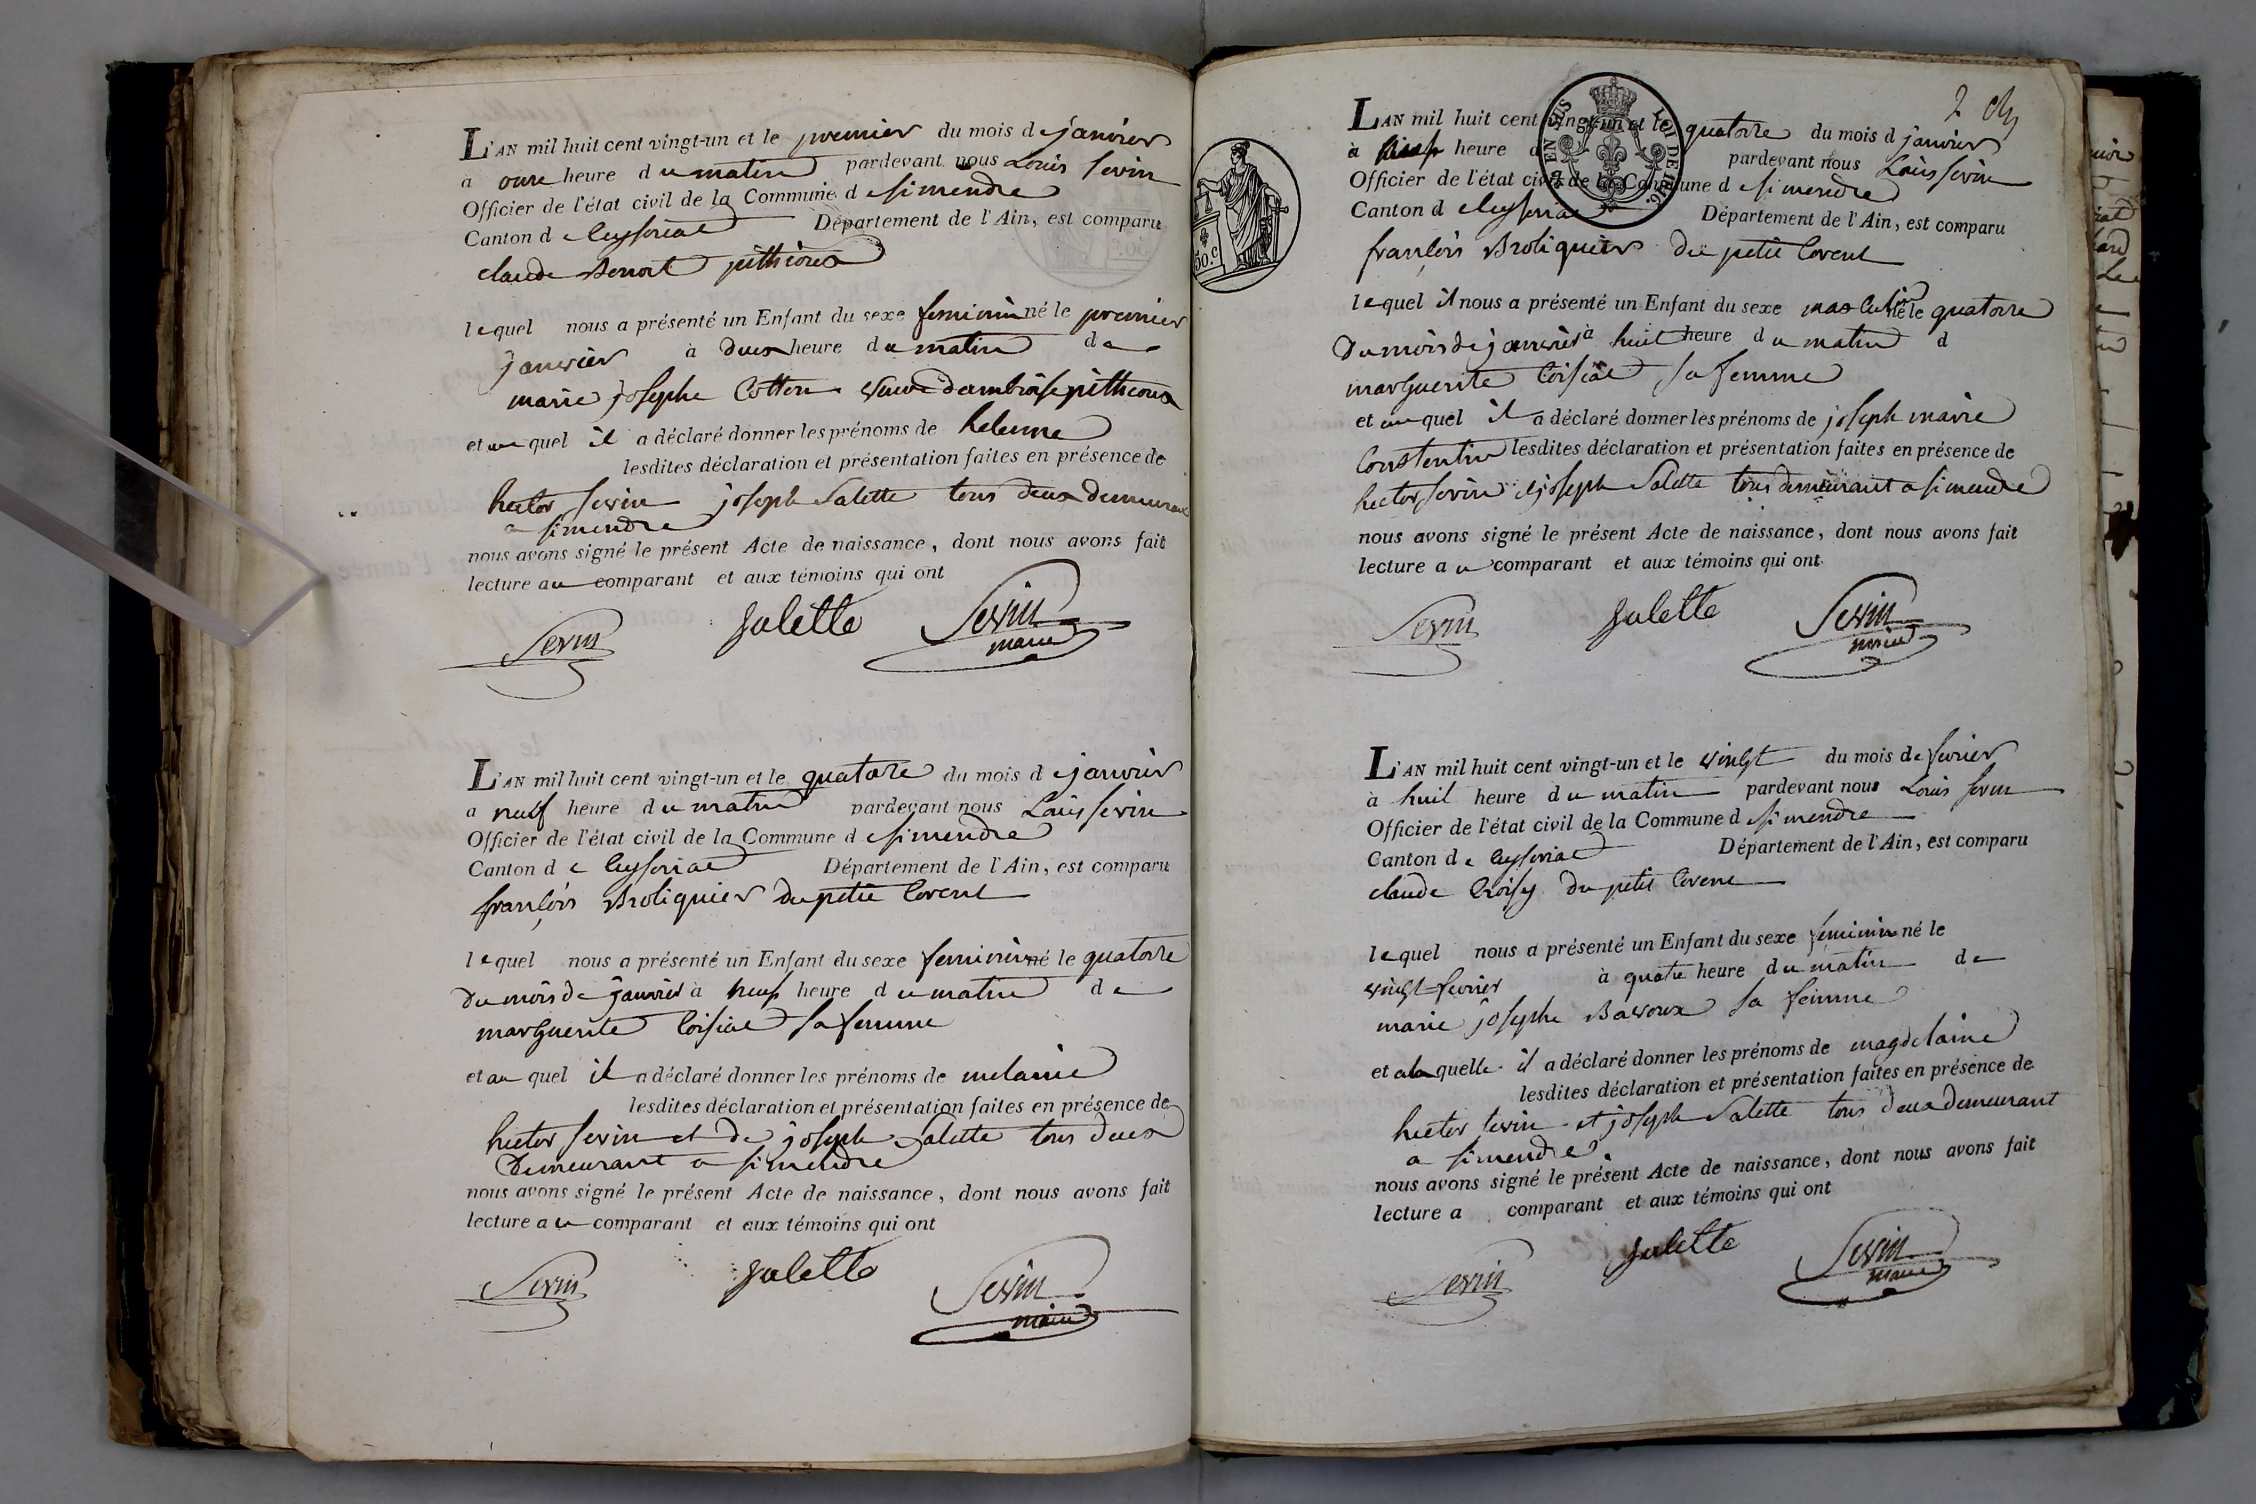 L'AN mil huit cent vingt-un et le premier du mois de janvier
a onze heure du matin pardevant nous Louis sevin
Officier de l'état civil de la Commune d simendre
Canton de Ceyseriat Département de l'Ain, est comparu
claude Benoit pithioux
lequel nous a présenté un Enfant du sexe feminin né le premier
janvier à deux heure du matin de
marie josephe Cotton veuve d'ambroise pithioux
et au quel il a déclaré donner les prénoms de helenne
lesdites déclaration et présentation faites en présence de
hector sevin joseph Salette tous deux demeurant
a simendre
nous avons signé le présent Acte de naissance, dont nous avons fait
lecture au comparant et aux témoins qui ont
Sevin Salette Sevin
maire
L'AN mil huit cent vingt-un et le quatorze du mois de janvier
a neuf heure du matin pardevant nous Louis sevin
Officier de l'état civil de la Commune d simendre
Canton de Ceyseriat Département de l'Ain, est comparu
françois Broliquier du petit Corent
lequel nous a présenté un Enfant du sexe feminin né le quatorze
du mois de janvier à neuf heure du matin de
marguerite Coisiat sa femme
et au quel il a déclaré donner les prénoms de melanie
lesdites déclaration et présentation faites en présence de
hector sevin et de joseph Salette tous deux
demeurant a simendre
nous avons signé le présent Acte de naissance, dont nous avons fait
lecture au comparant et aux témoins qui ont
Sevin Salette Sevin
maire
2
L'AN mil huit cent vingt-un et le quatorze du mois d janvier
à heure d pardevant nous Louis sevin
Officier de l'état civil de la Commune d simendre
Canton d Ceyseriat Département de l'Ain, est comparu
françois Broliquier du petit Corent
lequel il nous a présenté un Enfant du sexe masculin né le quatorze
du mois de janvier à huit heure du matin d
marguerite Coisiat sa femme
et au quel il a déclaré donner les prénoms de joseph marie
Constentin lesdites déclaration et présentation faites en présence de
hector sevin et joseph Salette tous demeurant a simendre
nous avons signé le présent Acte de naissance, dont nous avons fait
lecture au comparant et aux témoins qui ont
Sevin Salette Sevin
maire
L'AN mil huit cent vingt-un et le vingt du mois de fevrier
à huit heure du matin pardevant nous Louis sevin
Officier de l'état civil de la Commune d simendre
Canton de Ceyseriat Département de l'Ain, est comparu
claude Croisy du petit Corent
lequel nous a présenté un Enfant du sexe feminin né le
vingt fevrier à quatre heure du matin de
marie josephe Bavoux sa femme
et a la quelle il a déclaré donner les prénoms de magdelaine
lesdites déclaration et présentation faites en présence de
hector sevin et joseph Salette tous deux demeurant
a simendre
nous avons signé le présent Acte de naissance, dont nous avons fait
lecture a comparant et aux témoins qui ont
Sevin Salette Sevin
maire
50.C
EN SUS
LOI DE 1816.